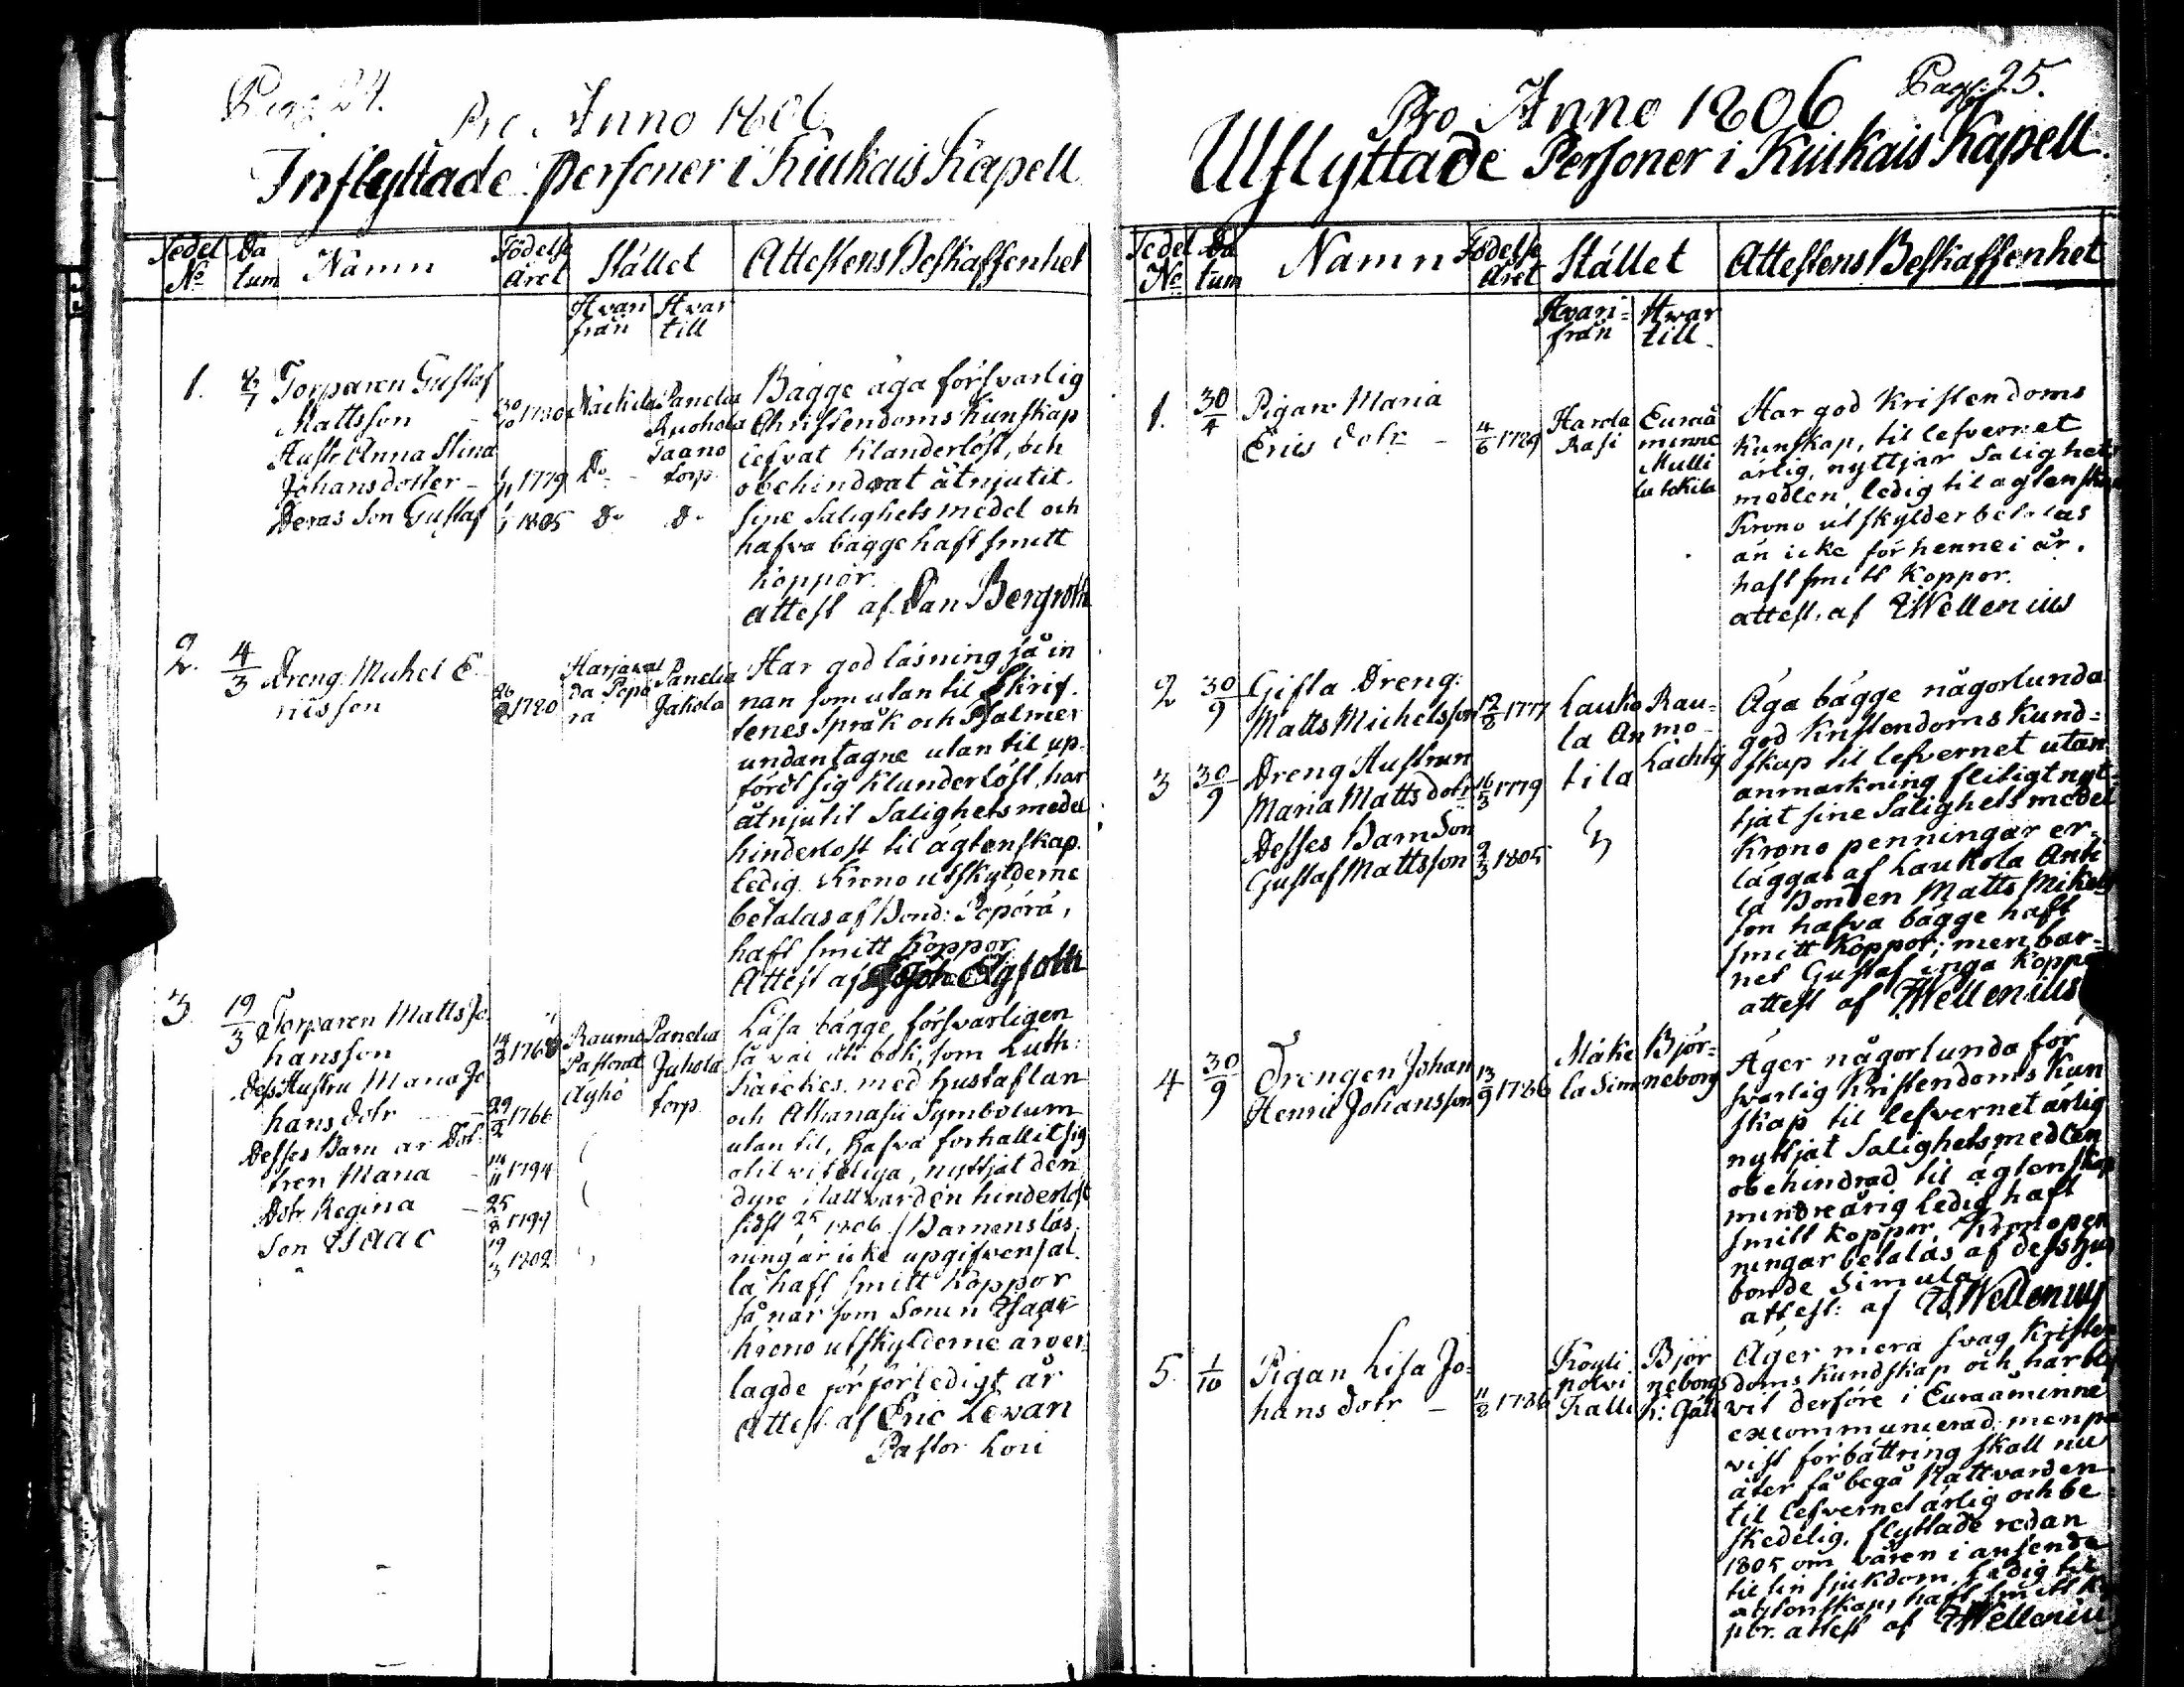 Pag: 24.
Pro Anno 1806
Inflyttade Personer i Kiukais Kapell
Sedel Da Namn Födelse Stället Attestens Beskaffenhet
No tum Året
Hvari Hvar
från till
1. Torparen Gustaf
Mattsson
Hustr Anna Stina
Johansdotter 1779 Do
Deras Son Gustaf 1805 Do Do
Panelia
Ruohola
torp
Bägge äga försvarlig
Christendoms Kunskap
lefvat klanderlöst, och
obehindrat åtnjutit.
sine Salighets medel och
hafva bägge haft smitt
koppor.
attest af Dan Bergroth
2. 4/3 Dreng: Michel E
Panelia
Jakola
Har god läsning så in
nan som utan til Skrif
tenes Språk och Psalmer
undantagne utan til up-
fördt sig klanderlöst, har
åtnjutit Salighets medel
hinderlöst til ägtenskap.
ledig. Krono utskylderne
betalas af Bond: Pepörä,
haft smitt koppor
Attest af Joh: Elgfoth
3. 19/3 Torparen Matts Jo
hansson
Dess Hustru Maria Jo
hans dotr 1766
Desses Barn är Dot
tren Maria 1794
Dotr Regina
Son Isaac 19/3 1802
Raumo Panelia
Pastorat Juhola
Äyhö torp
Läsa bägge försvarligen
så väl uti bok, som Luth:
Kateches. med Hustaflan
och Athanasii Symbolum
utan til, hafva förhållit sig
otilviteliga, nyttjat den
dyre Nattvarden hinderlöst
sidst 25/ 1806 / Barnens läs
ning är icke upgifven / al
la haft smitt koppor
så när som Sonen Isaac
Krono utskylderne är er
lagde för förledigt år
attest af Eric Levan
Pastor Loci
Pag: 25.
Pro Anno 1806
Utflyttade Personer i Kiukais Kapell.
Sedel Da Namn Födelse Stället Attestens Beskaffenhet
No tum Året
Hvari- Hvar
från till
1. 30/4 Pigan Maria
Erics dotr
Harola Euraå
Rasi minne
Mulli
Har god Kristendoms
Kunskap, til lefvernet
ärlig, nyttjar Salighets
medlen, ledig til ägtenskap
Krono utskylder betalas
än icke för henne i år.
haft smitt koppor.
attest. af Wellenius
2 30/9 Gifta Dreng:
Matts Michelsson 1777
3 30/9 Dreng Hustrun
Maria Matts dotr 16/3 1779
Desses Barn Son
Gustaf Mattsson 1805
Lauko Rau-
la An mo
tila
Äga bägge någorlunda
god Kristendoms Kund-
skap til lefvernet utan
anmärkning flitigt nyt-
tjat sine Salighets medel
Krono penningar er-
läggas af Laukola Anti
la Bonden Matts Mikels
son hafva bägge haft
smitt koppor; men bar-
net Gustaf inga koppor
attest af Wellenius
4 30/9 Drengen Johan
Henric Johansson 13/9 1786
Mäke Björ-
la Sim neborg
Äger någorlunda för
svarlig Kristendoms Kun
skap til lefvernet ärlig
nyttjat Salighetsmedlen
obehindrad til ägtenskap
mindreårig ledig haft
smitt koppor, Kronopen
ningar betalas af dess hus
bonde Simula
attest: af Wellenius
5. 1/10 Pigan Lisa Jo-
hans dotr 1786
Kouli Björ
polvi neborgs
Kalli
Äger mera svag Kristen
doms kundskap och har bli
vit derföre i Euraåminne
excommunicerad: men på
vist förbättring skall nu
åter få begå Nattvarden
til lefvernet ärlig och be
skedelig, flyttade redan
1805 om våren i anseende
til sin sjukdom, ledig til
ägtenskap, haft smitt ko
por. attest af Wellenius